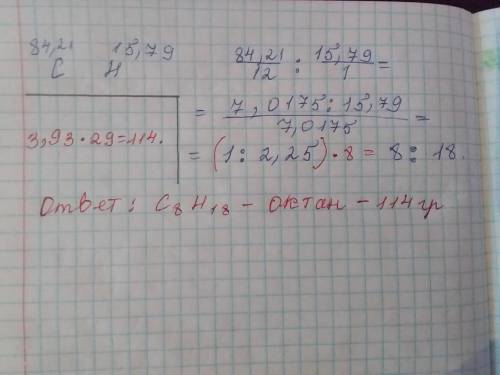 84,21 15,79
C H
84,21/12 : 15,79/1 =
= 7,0175 : 15,79 / 7,0175 =
3,93 · 29 = 114.
= (1 : 2,25) · 8 = 8 : 18.
Ответ: C₈H₁₈ - октан - 114 гр